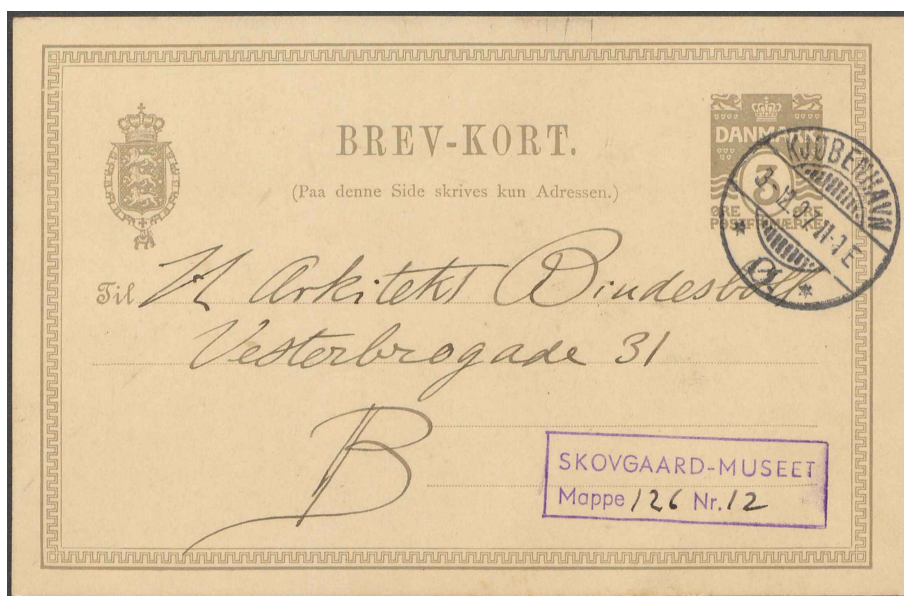 BREV-KORT.
(Paa denne Side skrives kun Adressen.)
DANMARK
3
ØRE ØRE
POSTFRIMÆRKE
KJØBENHAVN
11-1 E
Til H Arkitekt Bindesbøll
Vesterbrogade 31
B
SKOVGAARD-MUSEET
Mappe 126 Nr. 12